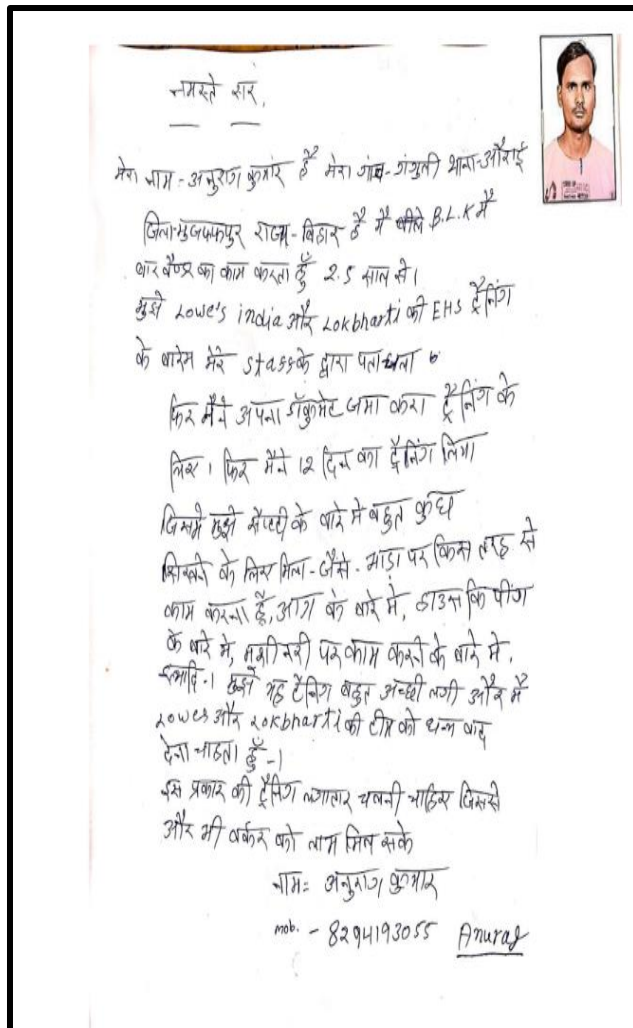 नमस्ते सर,
मेरा नाम - अनुराग कुमार है मेरा गांव - गंगुली थाना - औराई
जिला - मुजफ्फपुर राज्य - बिहार है मैं B.L.K में
बार बैण्डर का काम करता हूँ 2.5 साल से।
मुझे Lowe's india और Lokbharti की EHS ट्रैनिंग
के बारेमे मेरे staff के द्वारा पता चला
फिर मैंने अपना डॉकुमेंट जमा करा ट्रैनिंग के
लिए। फिर मैंने 12 दिन का ट्रैनिंग लिया
जिसमे मुझे सेफ्टी के बारे मे बहुत कुछ
सिखने के लिए मिला - जैसे - माड़ा पर किस तरह से
काम करना है, आग के बारे मे, हाउस कि पींग
के बारे मे, मशीनरी पर काम करने के बारे मे,
इत्यादि -। मुझे यह ट्रैनिंग बहुत अच्छी लगी और मैं
Lowes और Lokbharti की टीम को धन्य वाद
देना चाहता हूँ -।
इस प्रकार की ट्रैनिंग लगातार चलनी चाहिए जिससे
और भी वर्कर को लाभ मिल सके
नामः अनुराग कुमार
mob. - 8294193055 Anurag